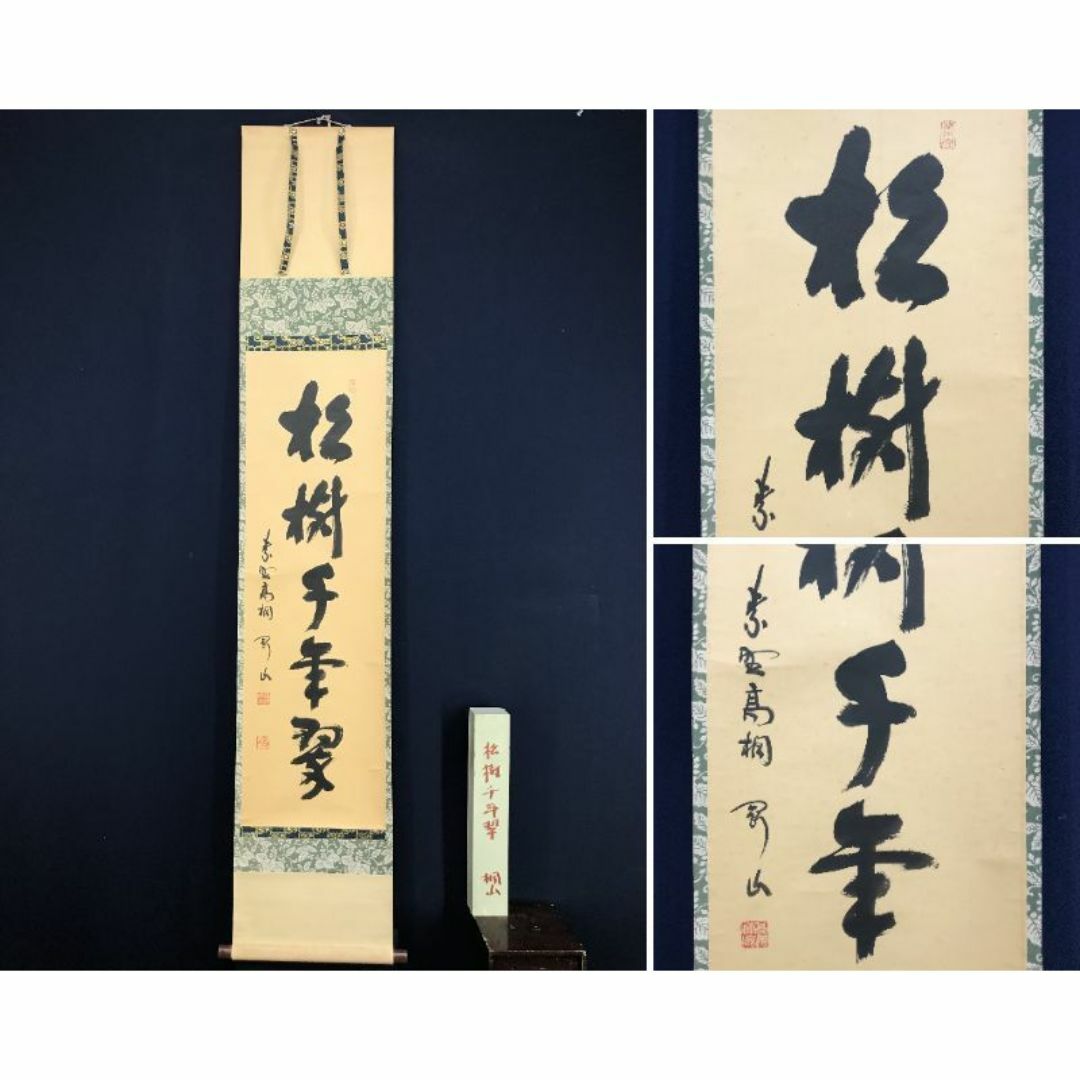 松樹千年翠
紫野高桐 剛山
松樹千年翠 桐山
松樹
紫
樹千年
紫野高桐 剛山